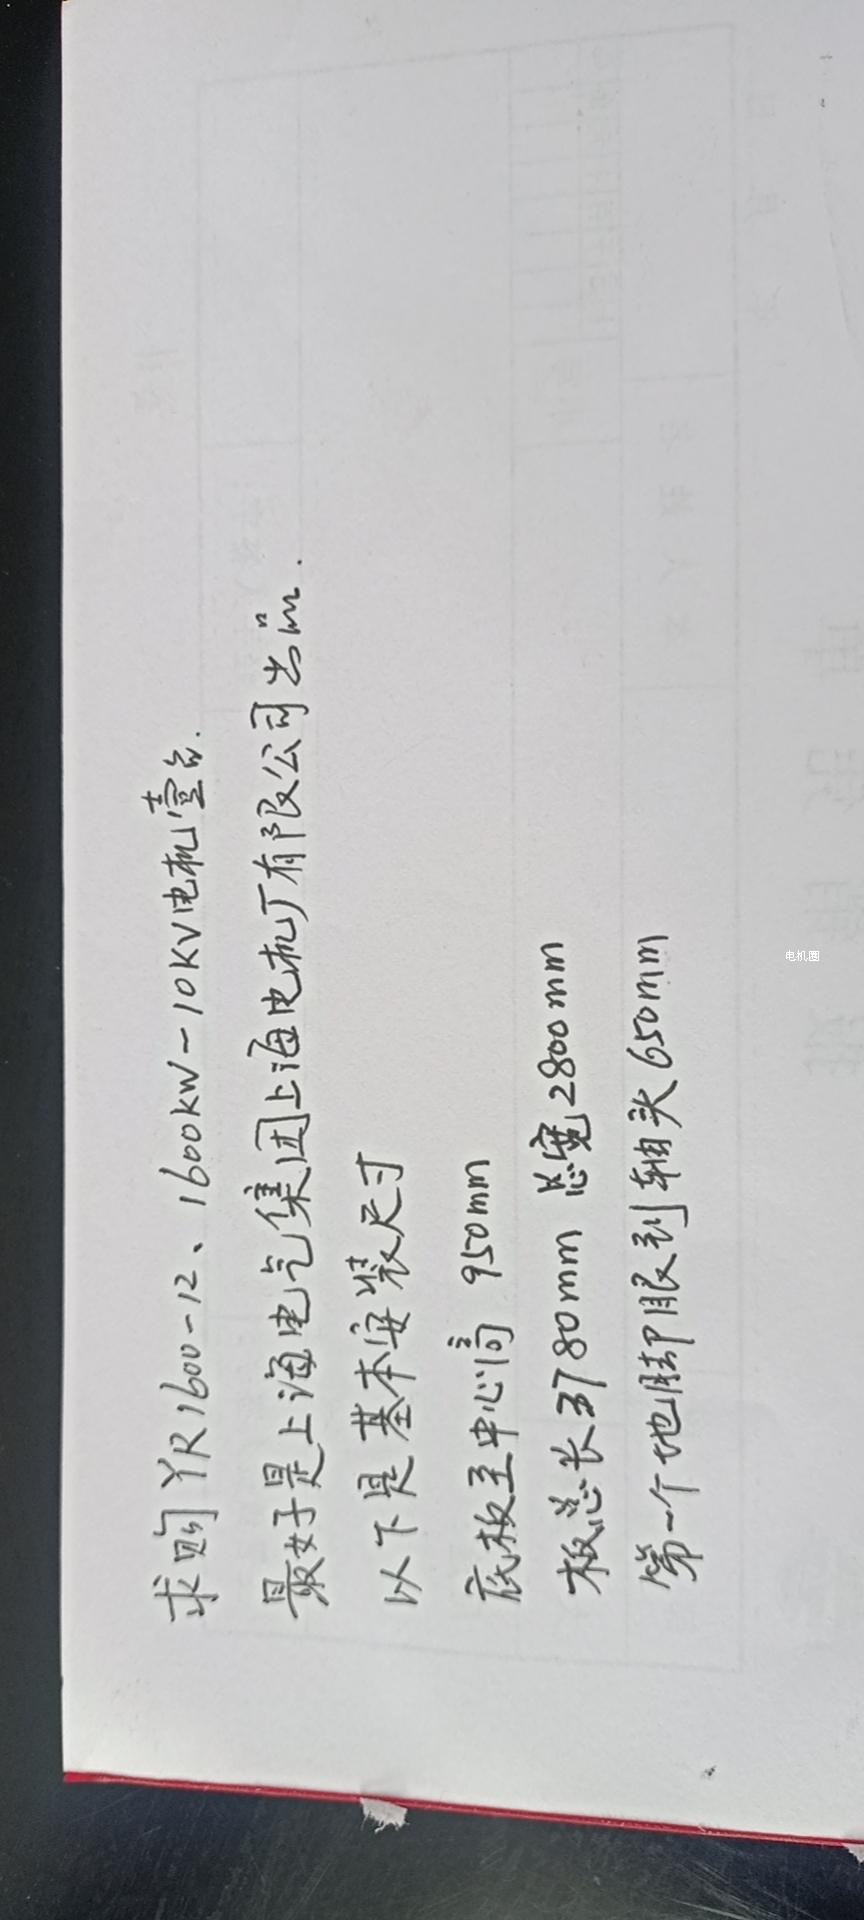 求购YR1600-12、1600KW-10KV电机壹台.
最好是上海电气集团上海电机厂有限公司出品.
以下是基本安装尺寸
底板至中心高 950mm
板总长3780mm 总宽2800mm
第一个地脚眼到轴头650mm
电机圈